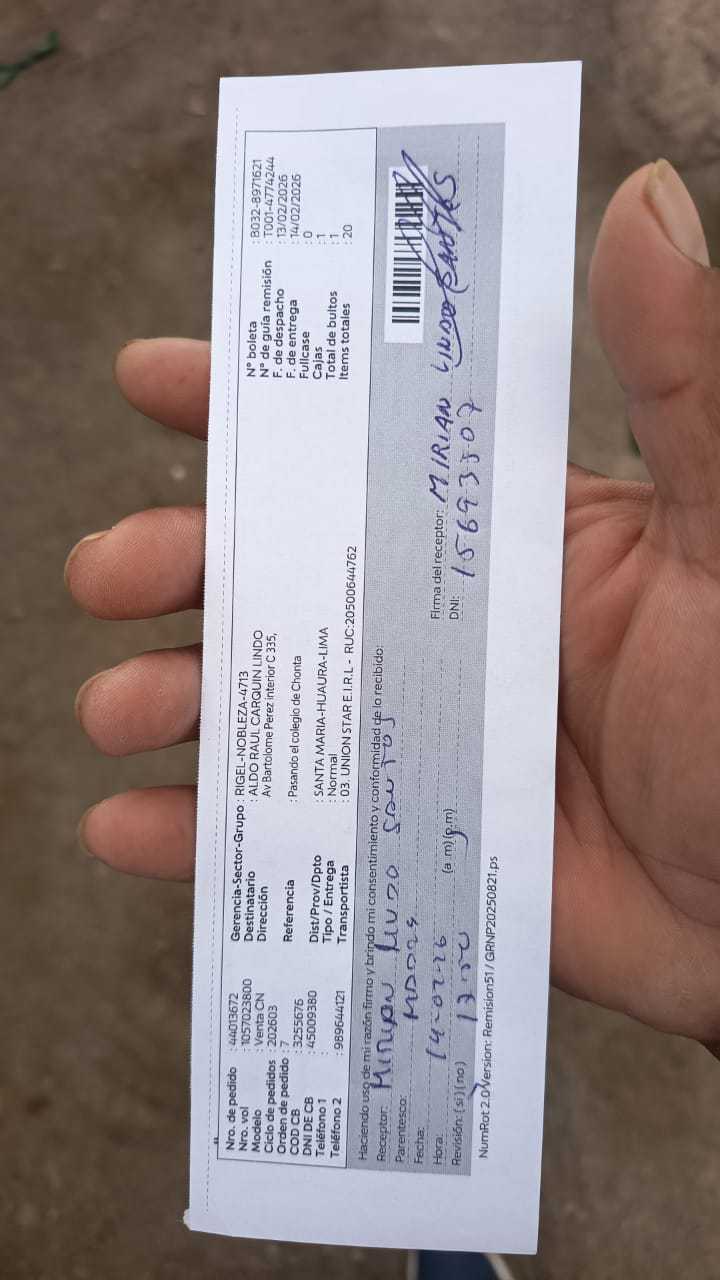 Nro. de pedido : 44013672
Nro. vol : 1057023800
Modelo : Venta CN
Ciclo de pedidos : 202603
Orden de pedido : 7
COD CB : 3255676
DNI DE CB : 45009380
Teléfono 1 :
Teléfono 2 : 989644121
Gerencia-Sector-Grupo : RIGEL-NOBLEZA-4713
Destinatario : ALDO RAUL CARQUIN LINDO
Dirección : Av Bartolome Perez interior C 335,
Referencia : Pasando el colegio de Chonta
Dist/Prov/Dpto : SANTA MARIA-HUAURA-LIMA
Tipo / Entrega : Normal
Transportista : 03. UNION STAR E.I.R.L - RUC:20500644762
N° boleta : B032-8971621
N° de guía remisión : T001-4774244
F. de despacho : 13/02/2026
F. de entrega : 14/02/2026
Fullcase : 0
Cajas : 1
Total de bultos : 1
Items totales : 20
Haciendo uso de mi razón firmo y brindo mi consentimiento y conformidad de lo recibido:
Receptor: Mirian Santos
Parentesco: Madre
Fecha: 14-02-26
Hora: (a.m)(p.m)
Revisión: (si)(no)
Firma del receptor: MIRIAN LINDO SANTOS
DNI: 15693507
NumRot 2.0 Version: Remision51 / GRNP20250821.ps